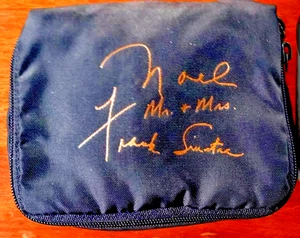 Noel
Mr. + Mrs.
Frank Sinatra